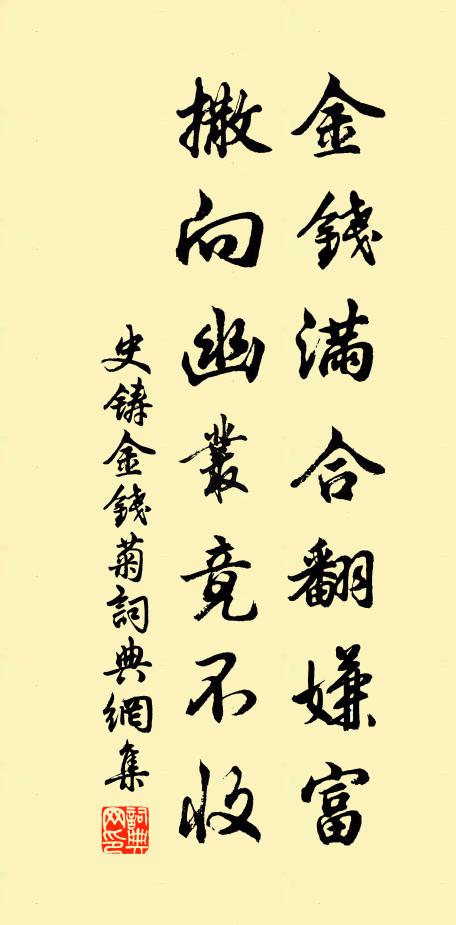 金錢滿合翻嫌富
撒向幽叢竟不收
史鑄金錢菊詞典網集
詞典網印